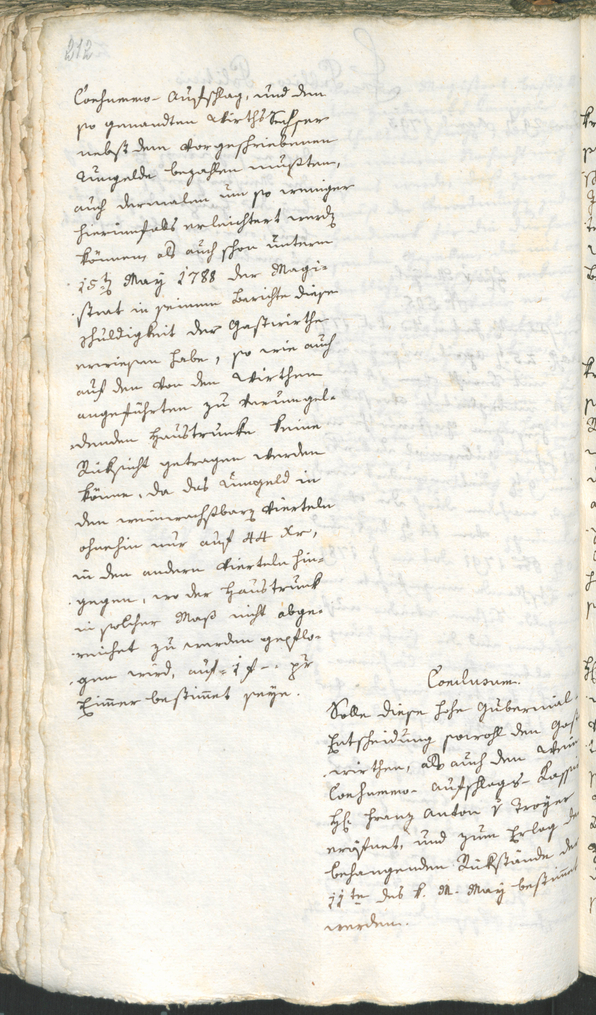 212
Consummo- Aufschlag, und den
so genandten Wirths Sechser
nebst dem vorgeschriebenen
Umgelde bezahlen mußten,
auch dermalen um so weniger
hierinfalls erleichtert werden
können, als auch schon unterm
15ten May 1788 der Magi-
strat in seinem Berichte diese
Schuldigkeit der Gastwirthe
erwiesen habe, so wie auch
auf den von den Wirthen
angeführten zu verumgel-
denden Haustrunke keine
Rüksicht getragen werden
könne, da das Umgeld in
den weinwachsbaren Vierteln
ohnehin nur auf 44 Xr,
in den andern Vierteln hin-
gegen, wo der Haustrunk
in solcher Maß nicht abge-
reichet zu werden gepflo-
gen wird, auf 1 f -. pr
Eimer bestimmet seye.
Conclusum.
Solle diese hohe Gubernial-
Entscheidung sowohl den Gast-
wirthen, als auch dem Wein
Consummo- Aufschlags- Kassier
H. Franz Anton v Troyer
eröfnet, und zum Erlag der
behangenden Rükstände der
11te des k. M. May bestimmet
werden.